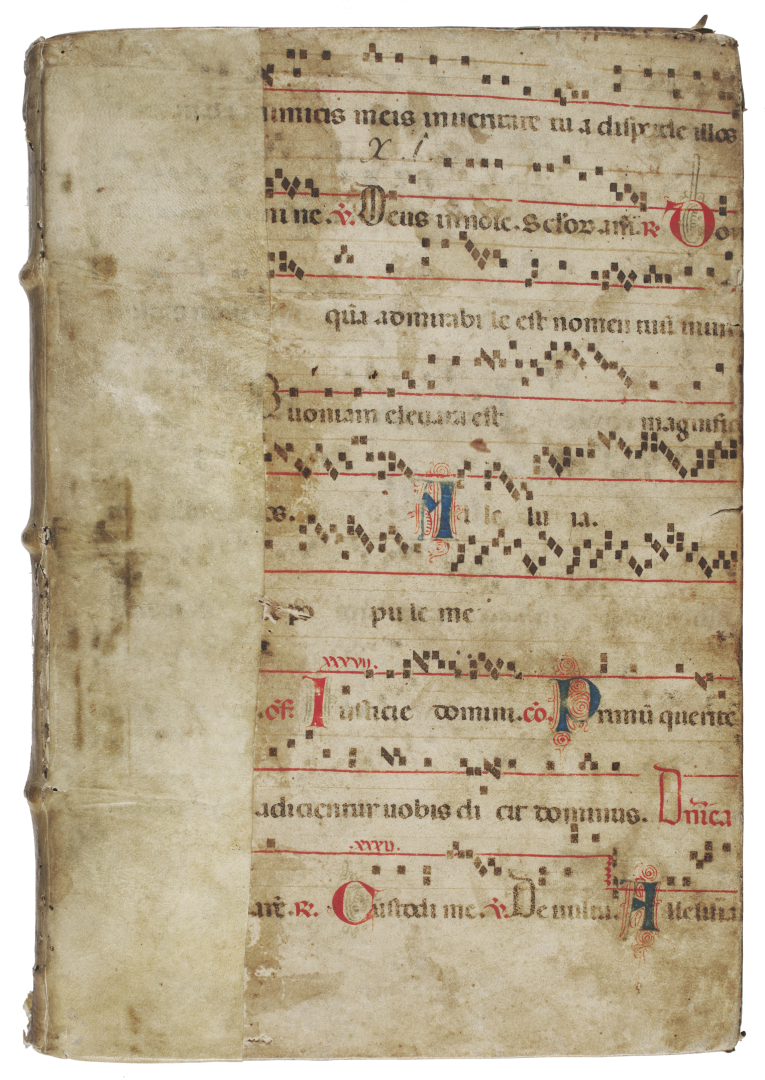 inimicis meis inueniatur tua disperde illos
x i
mine. v. Deus iudic. Sclor. am. R Dom
qua admirabile est nomen tuū in uni
Quoniam eleuata est magnific
os. A l le lu ia.
popule me
xxxvii.
.of. Iusticie domini. cō. Primū querite
adicientur uobis di cit dominus. Dnica
.xxxv.
are. R. Custodi me. v. De uultu. Alleluia